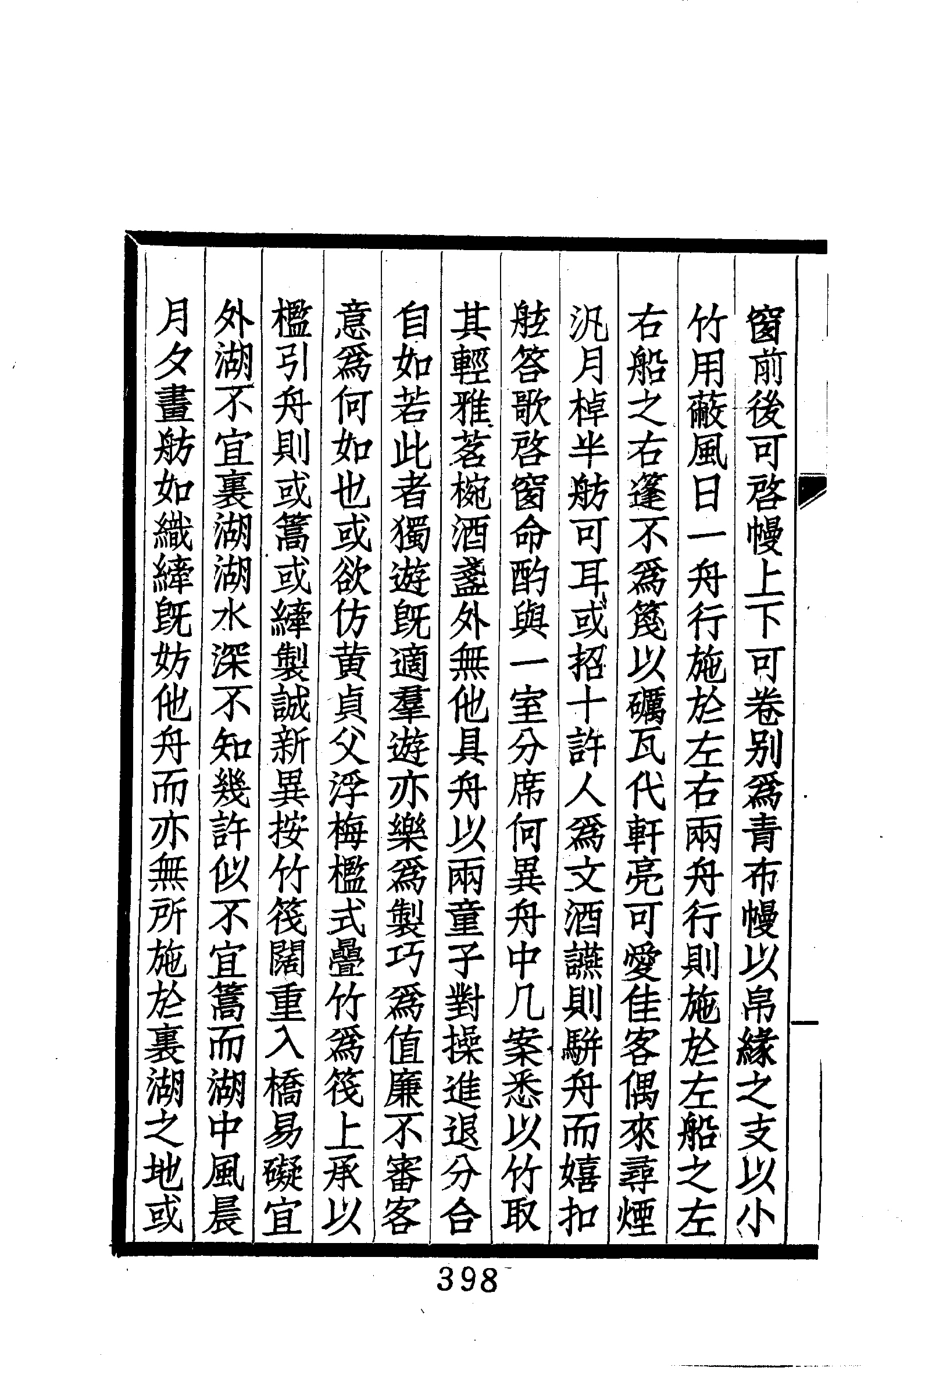 窗前後可啓幔上下可卷别爲青布幔以帛緣之支以小
竹用蔽風日一舟行施於左右兩舟行則施於左船之左
右船之右篷不爲篾以礪瓦代軒亮可愛佳客偶來尋煙
汎月棹半舫可耳或招十許人爲文酒讌則駢舟而嬉扣
舷答歌啓窗命酌與一室分席何異舟中几案悉以竹取
其輕雅茗椀酒盞外無他具舟以兩童子對操進退分合
自如若此者獨遊旣適羣遊亦樂爲製巧爲值廉不審客
意爲何如也或欲仿黄貞父浮梅檻式疊竹爲筏上承以
檻引舟則或篙或縴製誠新異按竹筏闊重入橋易礙宜
外湖不宜裏湖湖水深不知幾許似不宜篙而湖中風晨
月夕畫舫如織縴旣妨他舟而亦無所施於裏湖之地或
398